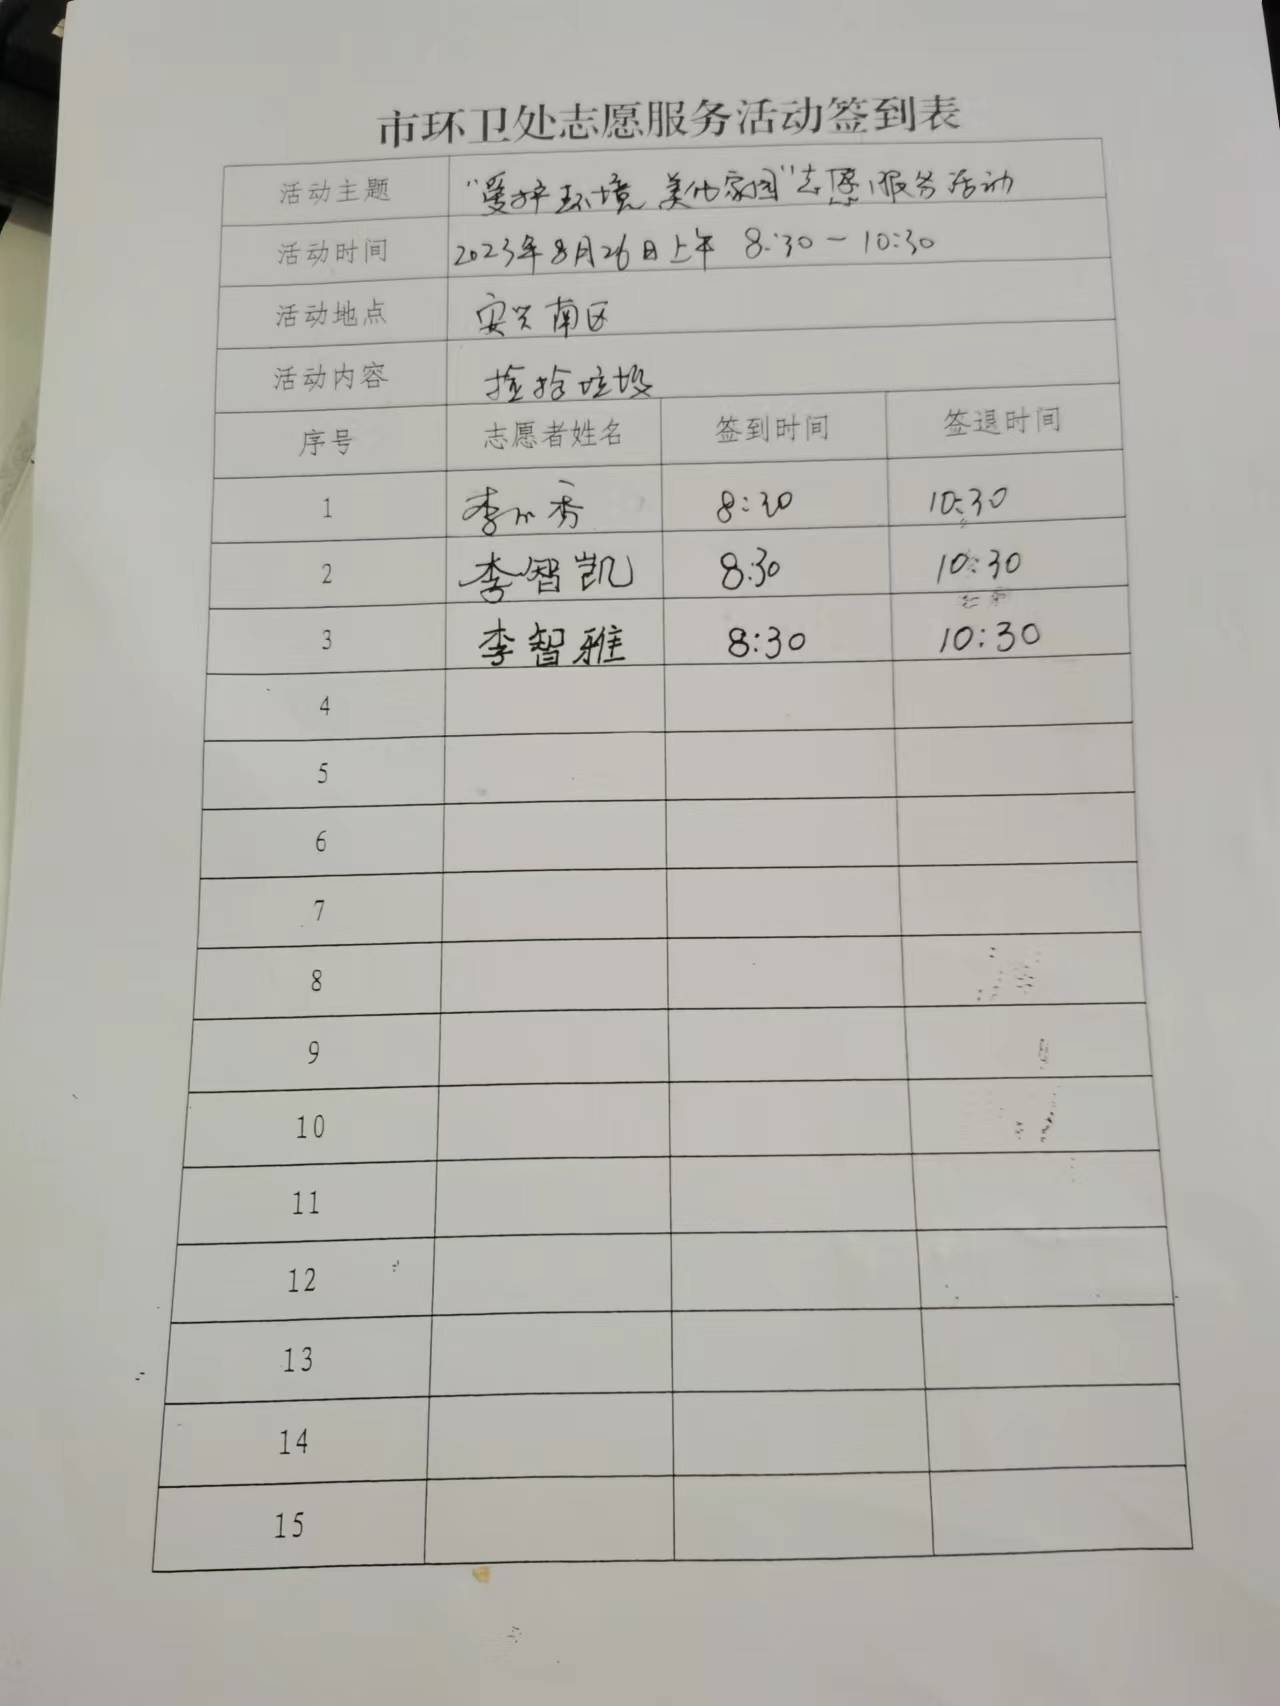 市环卫处志愿服务活动签到表
活动主题 "爱护环境 美化家园"志愿服务活动
活动时间 2023年8月26日上午 8:30-10:30
活动地点 安兴南区
活动内容 捡拾垃圾
序号 志愿者姓名 签到时间 签退时间
1 李小秀 8:30 10:30
2 李智凯 8:30 10:30
3 李智雅 8:30 10:30
4
5
6
7
8
9
10
11
12
13
14
15